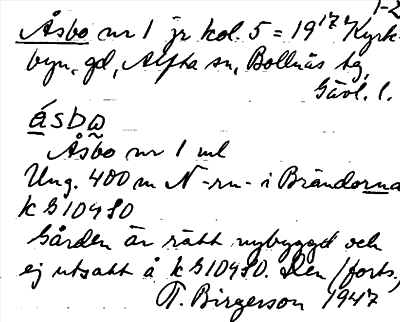 1-2
Åsbo nr 1 jr kol. 5 = 19¹⁷/₄ Kyrk-
byn, gd, Alfta sn, Bollnäs tg,
Gävl. l.
ásbo
Åsbo nr 1 ml
Ung. 400 m N -rn- i Brändorna
k G10480
Gården är rätt nybyggd och
ej utsatt å k G10480. Den (forts.)
T. Birgerson 1947